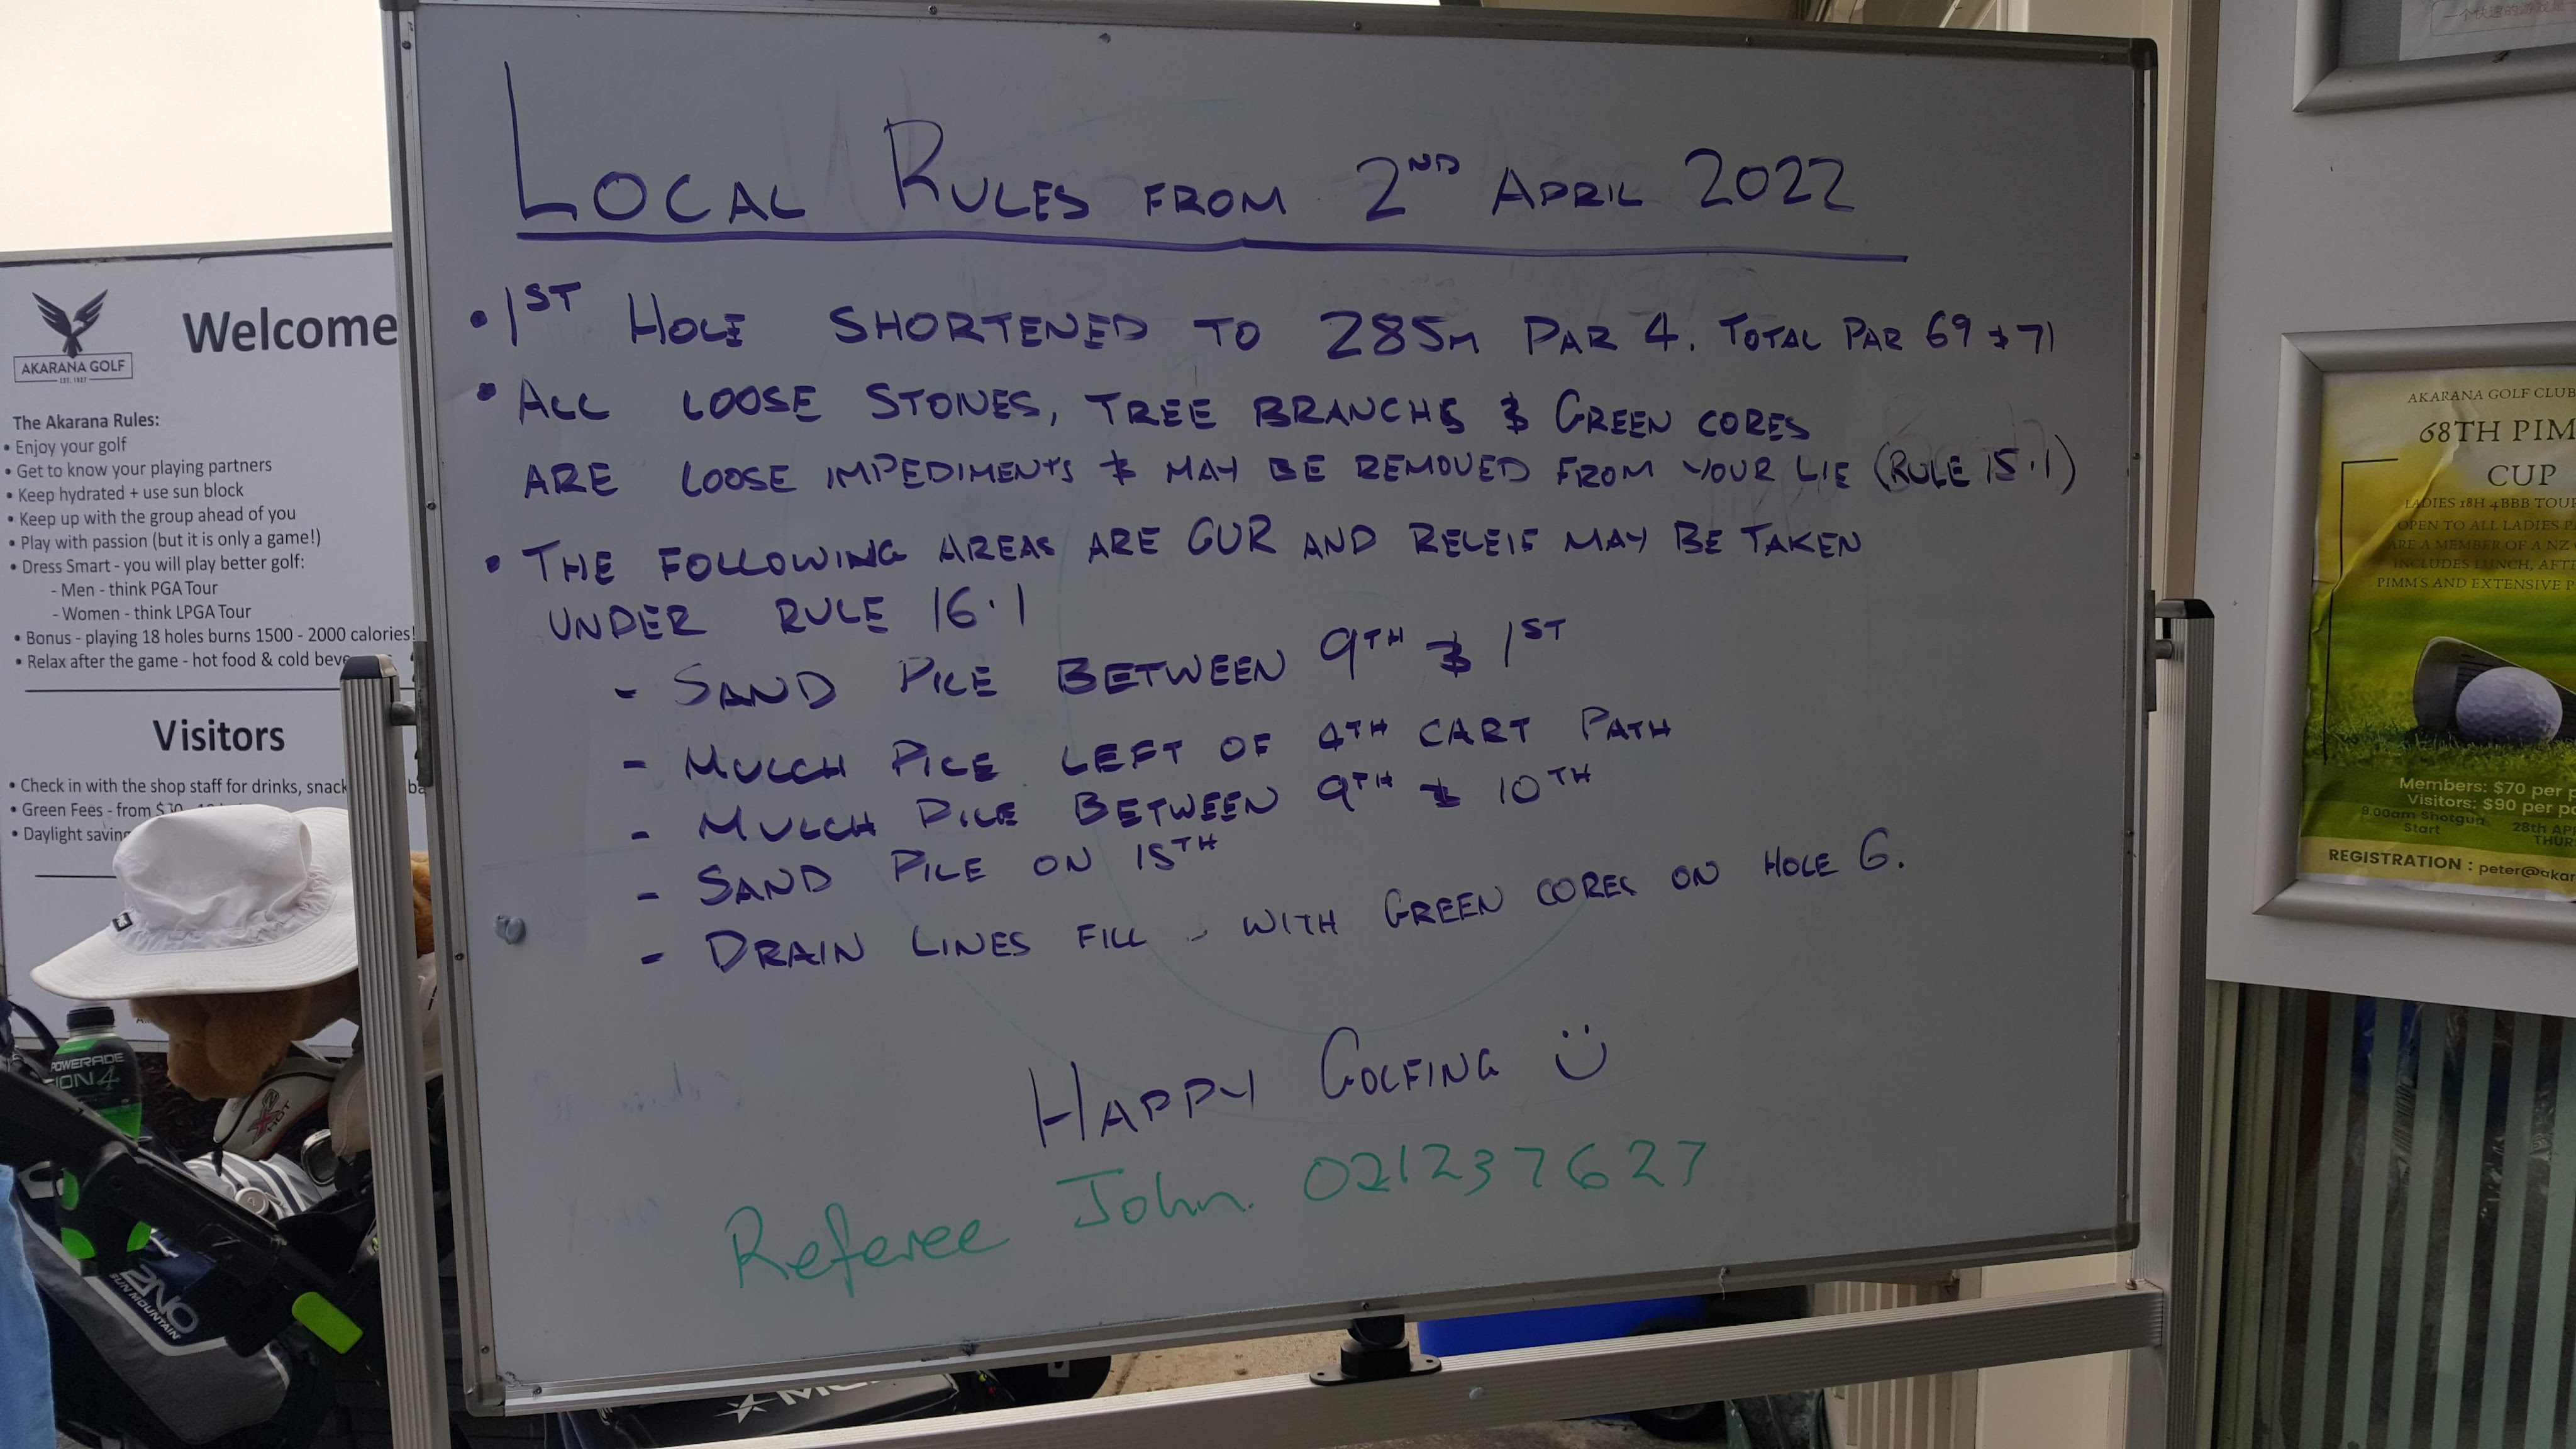 LOCAL RULES FROM 2ND APRIL 2022
• 1ST HOLE SHORTENED TO 285M PAR 4. TOTAL PAR 69 & 71
• ALL LOOSE STONES, TREE BRANCHS & GREEN CORES
ARE LOOSE IMPEDIMENTS & MAY BE REMOVED FROM YOUR LIE (RULE 15.1)
• THE FOLLOWING AREAS ARE GUR AND RELEIF MAY BE TAKEN
UNDER RULE 16.1
- SAND PILE BETWEEN 9TH & 1ST
- MULCH PILE LEFT OF 4TH CART PATH
- MULCH PILE BETWEEN 9TH & 10TH
- SAND PILE ON 15TH
- DRAIN LINES FILL WITH GREEN CORES ON HOLE 6.
HAPPY GOLFING
Referee John 021237627
Welcome
AKARANA GOLF
EST. 1927
The Akarana Rules:
• Enjoy your golf
• Get to know your playing partners
• Keep hydrated + use sun block
• Keep up with the group ahead of you
• Play with passion (but it is only a game!)
• Dress Smart - you will play better golf:
- Men - think PGA Tour
- Women - think LPGA Tour
• Bonus - playing 18 holes burns 1500 - 2000 calories!
• Relax after the game - hot food & cold beve
Visitors
• Check in with the shop staff for drinks, snack ba
• Green Fees - from
• Daylight saving
POWERADE
ION4
X HOT
2NO
SUN MOUNTAIN
一个快速的游戏是
AKARANA GOLF CLUB
68TH PIM
CUP
LADIES 18H 4BBB TOUR
OPEN TO ALL LADIES
ARE A MEMBER OF A NZ
INCLUDES LUNCH, AFTE
PIMM'S AND EXTENSIVE P
Members: $70 per p
Visitors: $90 per p
9.00am Shotgun
Start
28th AP
THUR
REGISTRATION : peter@akar